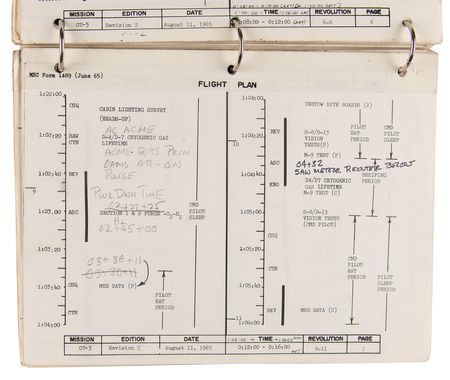 MISSION EDITION DATE TIME REVOLUTION PAGE
GT-5 Revision 2 August 11, 1965 0:08:00 - 0:12:00 6-8 6
MSC Form 1489 (June 65)
FLIGHT PLAN
1:02:00
CSQ
CABIN LIGHTING SURVEY
(HEADS-UP)
AC ACME
HAW
D-4/D-7 CRYOGENIC GAS
CTN
LIFETIME
ACME PRIM
ON
PULSE
9
PWR DWN TIME
02+27+25
1:03:00
ASC
SECTION 1 & 2 PURGE -O2-H2
H2
02+45+00
CMD
PILOT
SLEEP
03+38+11
CSQ
MED DATA (P)
PILOT
EAT
PERIOD
CTN
1:04:00
1:04:00
UNSTOW 8ITH (2)
RKV
S-8/D-13
VISION
TESTS(P)
PILOT
EAT
PERIOD
CMD
PILOT
SLEEP
PERIOD
10
M-9 TEST (P)
ASC
04+52
SAW METEOR REENTER BELOW
BRIEFING
PERIOD
KNO
D4/D7 CRYOGENIC
GAS LIFETIME
M-9 TEST (C)
1:05:00
S-8/D-13
VISION TESTS
(CMD PILOT)
CMD
PILOT
EAT
PERIOD
PILOT
SLEEP
PERIOD
CSQ
RKV
MED DATA (C)
11
1:06:00
MISSION EDITION DATE TIME REVOLUTION PAGE
GT-5 Revision 2 August 11, 1965 0:12:00 - 0:16:00 8-11 7